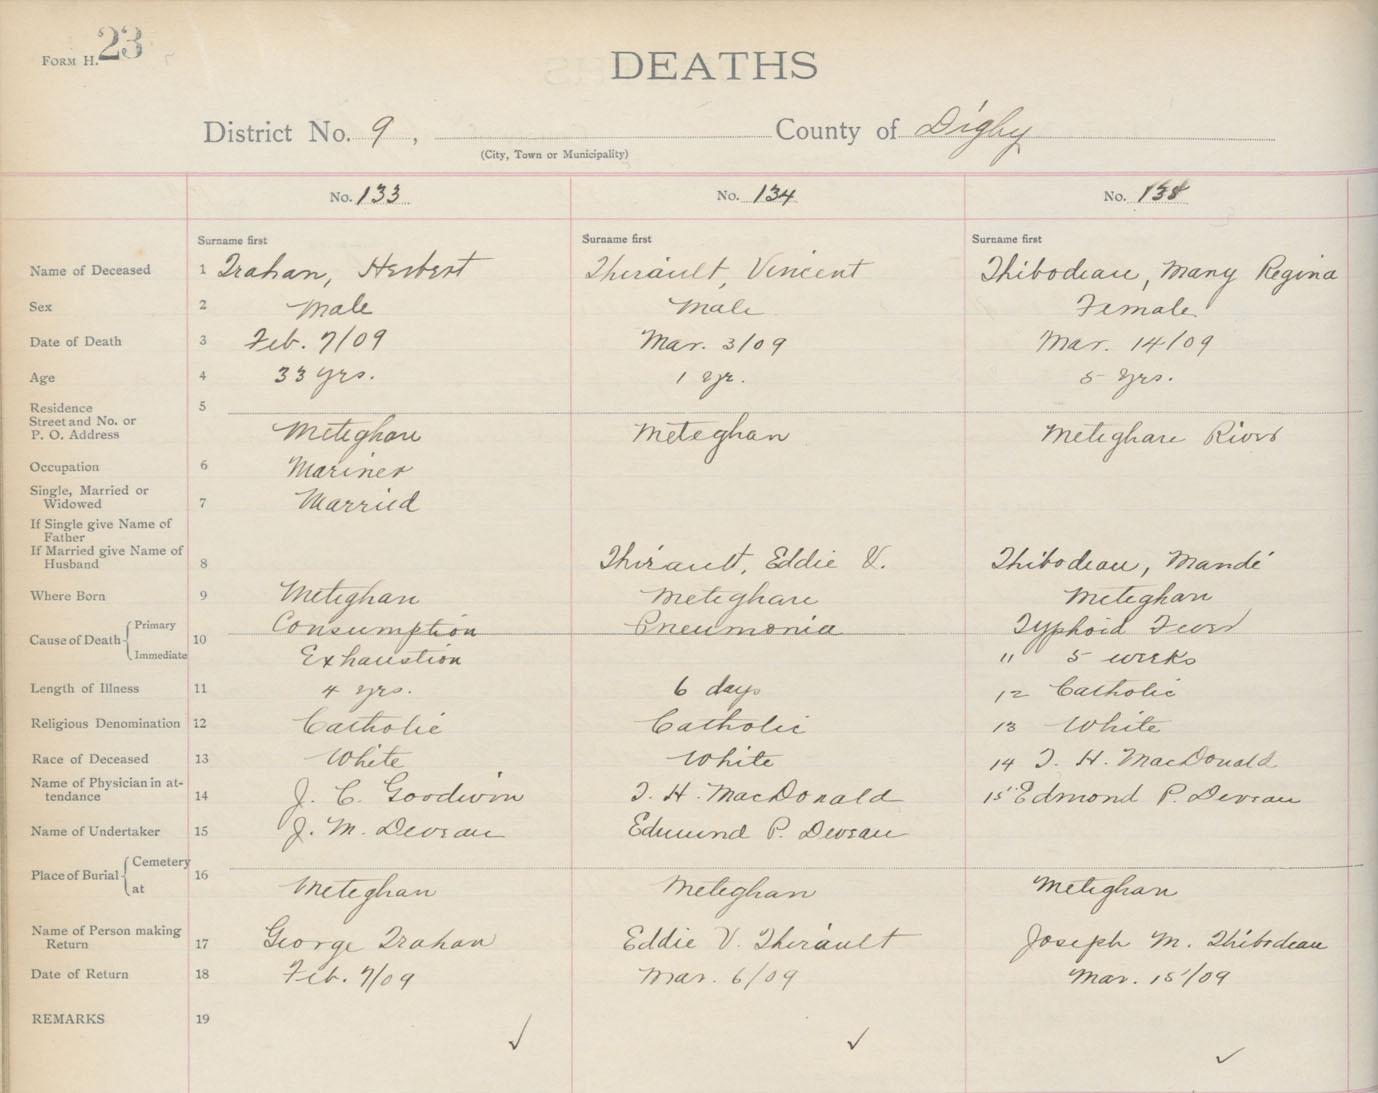 FORM H. 23
DEATHS
District No. 9, County of Digby
(City, Town or Municipality)
No. 133 No. 134 No. 135
Surname first Surname first Surname first
Name of Deceased 1 Trahan, Herbert Thiriault, Vincent Thibodeau, Mary Regina
Sex 2 Male Male Female
Date of Death 3 Feb. 7/09 Mar. 3/09 Mar. 14/09
Age 4 33 yrs. 1 yr. 5 yrs.
Residence 5
Street and No. or
P. O. Address Meteghan Meteghan Meteghan River
Occupation 6 Mariner
Single, Married or
Widowed 7 Married
If Single give Name of
Father
If Married give Name of
Husband 8 Thiriault, Eddie V. Thibodeau, Mandé
Where Born 9 Meteghan Meteghan Meteghan
Cause of Death { Primary Consumption Pneumonia Typhoid Fever
10
Immediate Exhaustion 11 5 weeks
Length of Illness 11 4 yrs. 6 days 12 Catholic
Religious Denomination 12 Catholic Catholic 13 White
Race of Deceased 13 White White 14 T. H. MacDonald
Name of Physician in at-
tendance 14 J. C. Goodwin T. H. MacDonald 15 Edmond P. Deveau
Name of Undertaker 15 J. M. Deveau Edmund P. Deveau
Place of Burial { Cemetery 16
at Meteghan Meteghan Meteghan
Name of Person making
Return 17 George Trahan Eddie V. Thiriault Joseph M. Thibodeau
Date of Return 18 Feb. 7/09 Mar. 6/09 Mar. 15/09
REMARKS 19